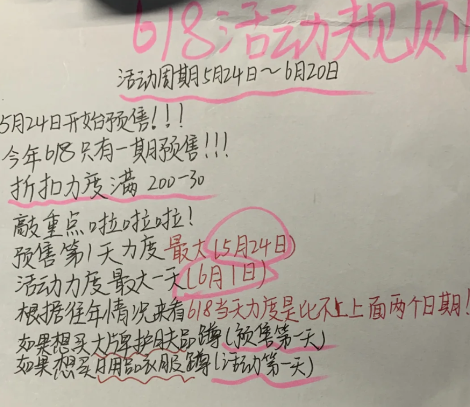 618活动规则
活动周期5月24日～6月20日
5月24日开始预售!!!
今年618只有一期预售!!!
折扣力度满 200-30
敲重点啦啦啦!
预售第1天力度最大(5月24日)
活动力度最大一天(6月1日)
根据往年情况来看618当天力度是比不上上面两个日期!
如果想买大牌护肤品蹲(预售第一天)
如果想买日用品衣服蹲(活动第一天)